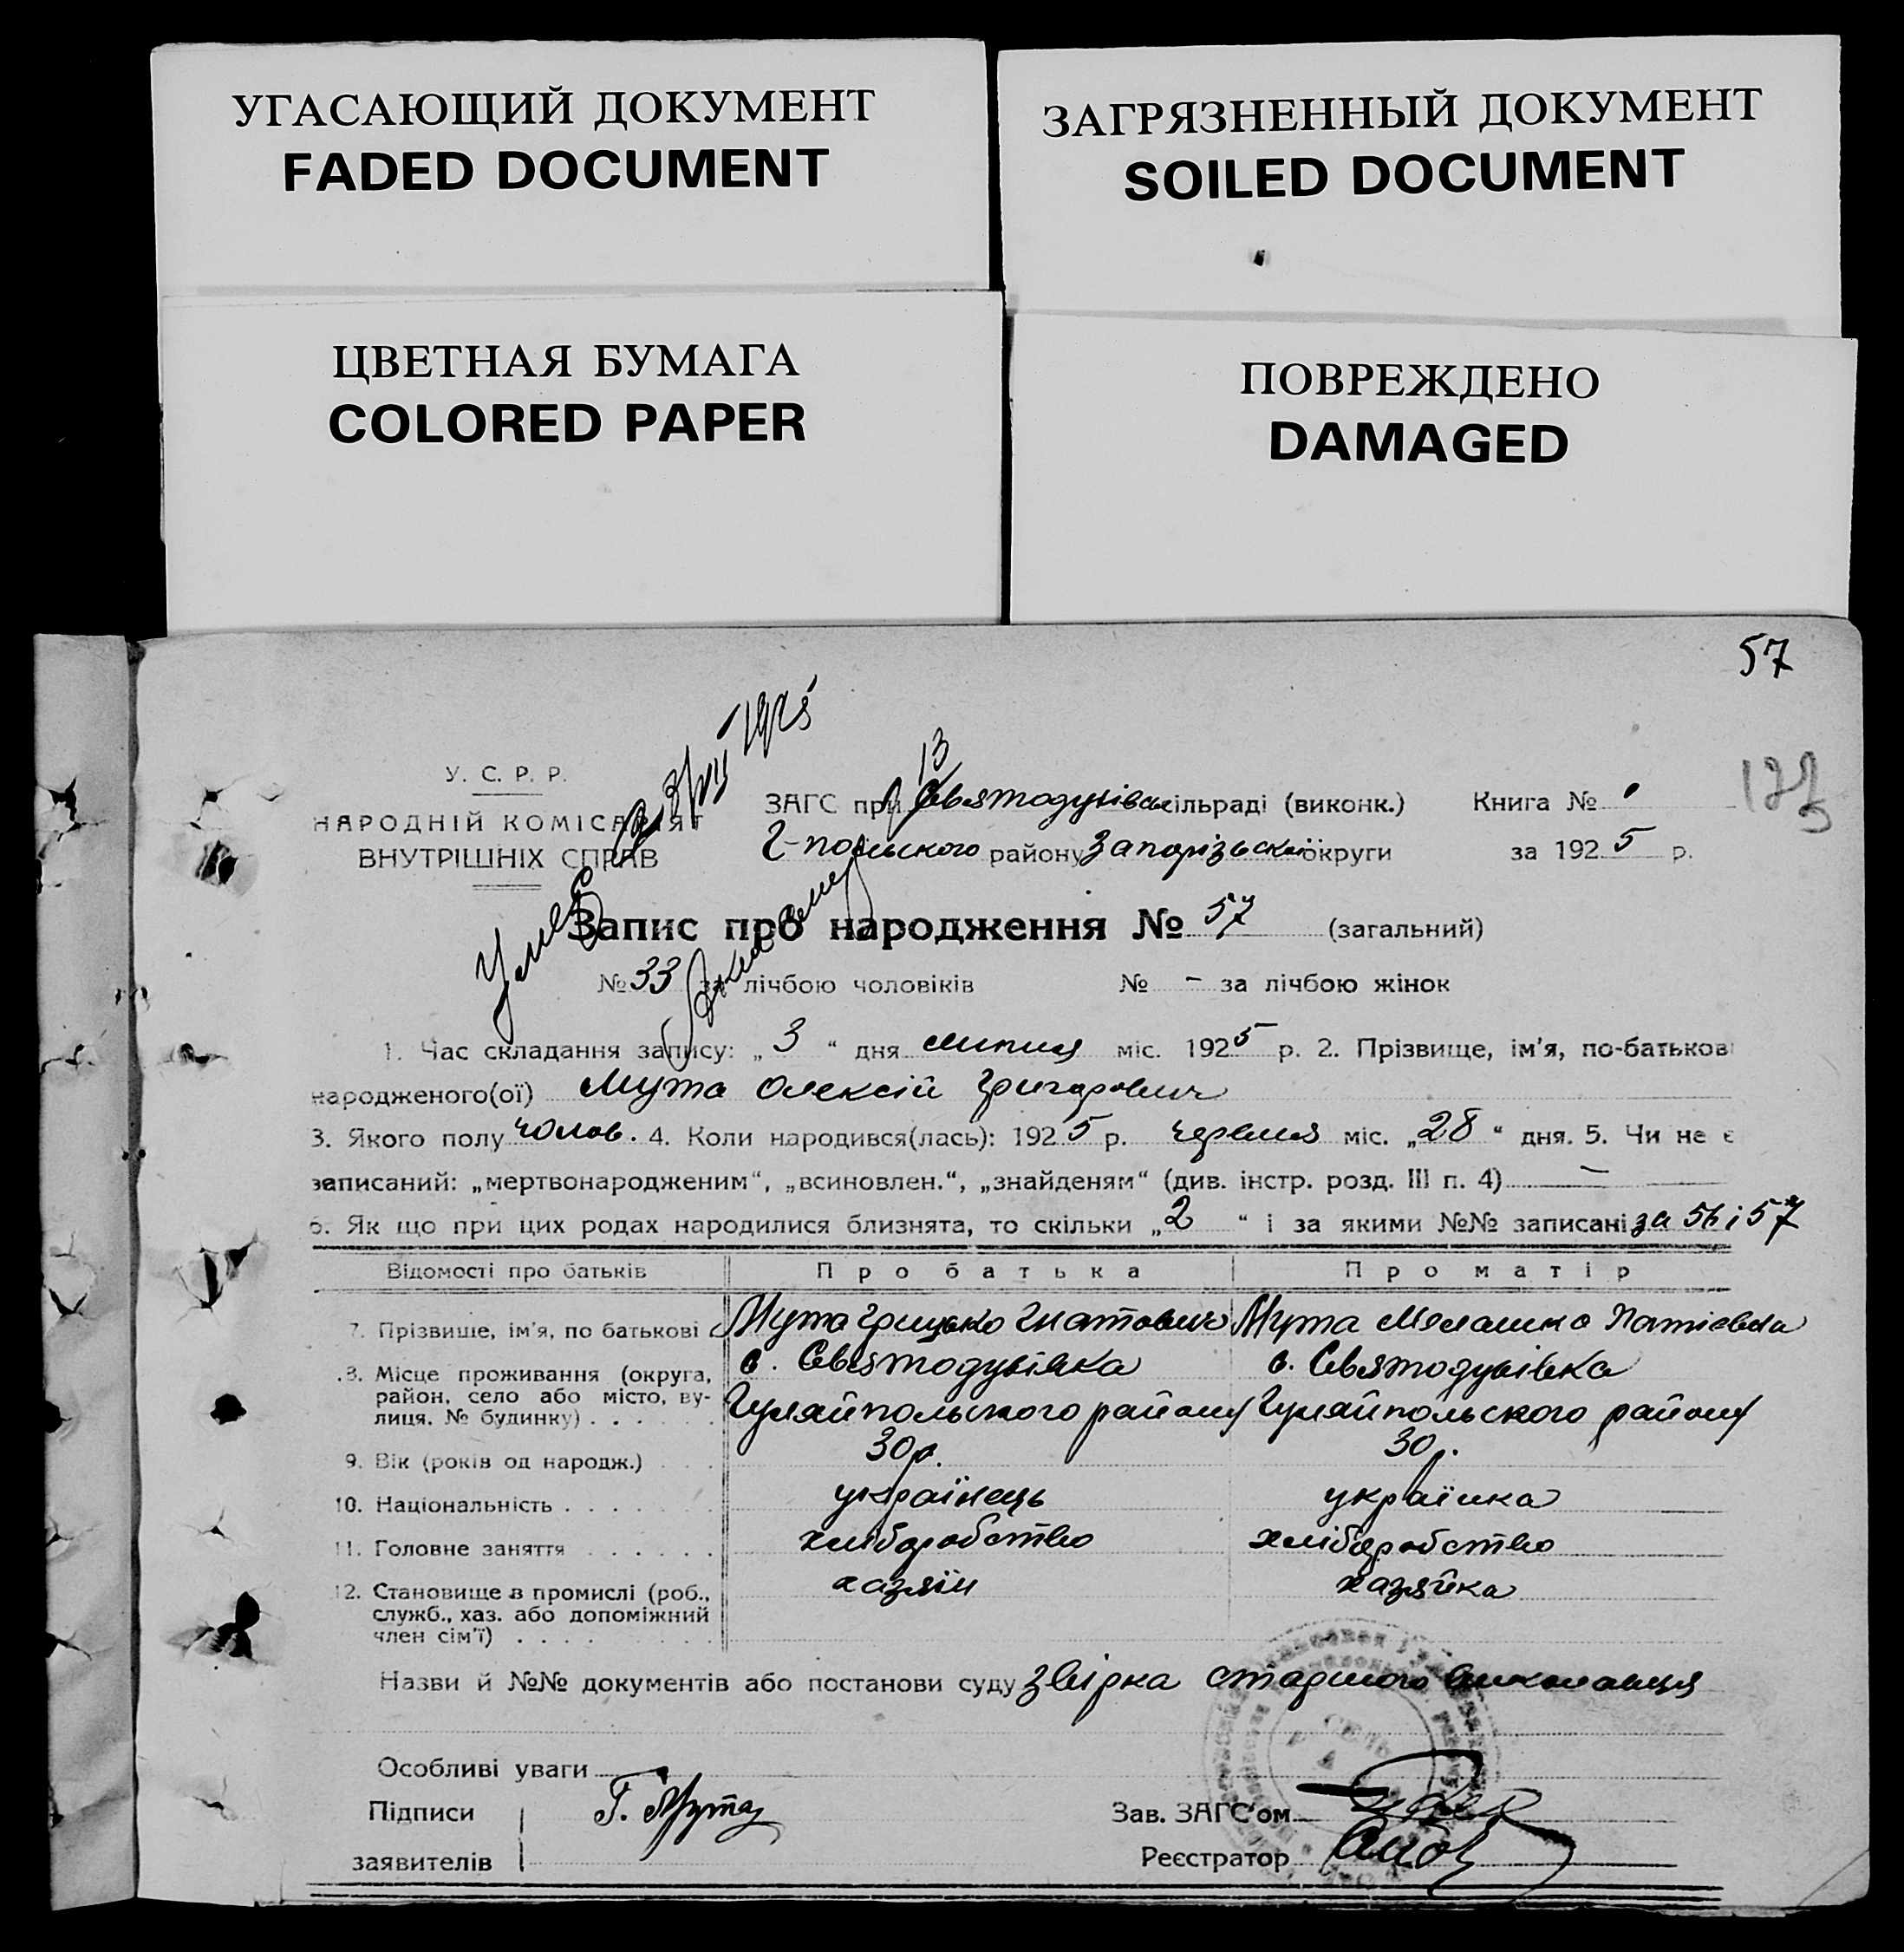 УГАСАЮЩИЙ ДОКУМЕНТ
FADED DOCUMENT
ЗАГРЯЗНЕННЫЙ ДОКУМЕНТ
SOILED DOCUMENT
ЦВЕТНАЯ БУМАГА
COLORED PAPER
ПОВРЕЖДЕНО
DAMAGED
57
У. С. Р. Р.
НАРОДНІЙ КОМІСАРІЯТ
ВНУТРІШНІХ СПРАВ
Умер 3/VII 1925
13
ЗАГС при Святодухівськ сільраді (виконк.) Книга №
Г-польського району Запорізької округи за 1925 р.
Запис про народження № 57 (загальний)
№ 33 за лічбою чоловіків № - за лічбою жінок
1. Час складання запису: „ 3 “ дня липня міс. 1925 р. 2. Прізвище, ім'я, по-батькові
народженого(ої) Мута Олексій Григорович
3. Якого полу чолов. 4. Коли народився(лась): 1925 р. червня міс. „28“ дня. 5. Чи не є
записаний: „мертвонародженим“, „всиновлен.“, „знайденям“ (див. інстр. розд. III п. 4) —
6. Як що при цих родах народилися близнята, то скільки „2“ і за якими №№ записані за 56 і 57
Відомості про батьків Про батька Про матір
7. Прізвише, ім'я, по батькові Мута Грицько Гнатович Мута Мелашка
8. Місце проживання (округа, район, село або місто, вулиця, № будинку) с. Святодухівка с. Святодухівка
Гуляйпольського району Гуляйпольського району
9. Вік (років од народж.) 30 р. 30 р.
10. Національність українець українка
11. Головне заняття хліборобство хліборобство
12. Становище в промислі (роб., служб., хаз. або допоміжний член сім'ї) хазяїн хазяйка
Назви й №№ документів або постанови суду звірка старшого виконавця
Особливі уваги
Підписи Г. Мута Зав. ЗАГС'ом
заявителів Реєстратор